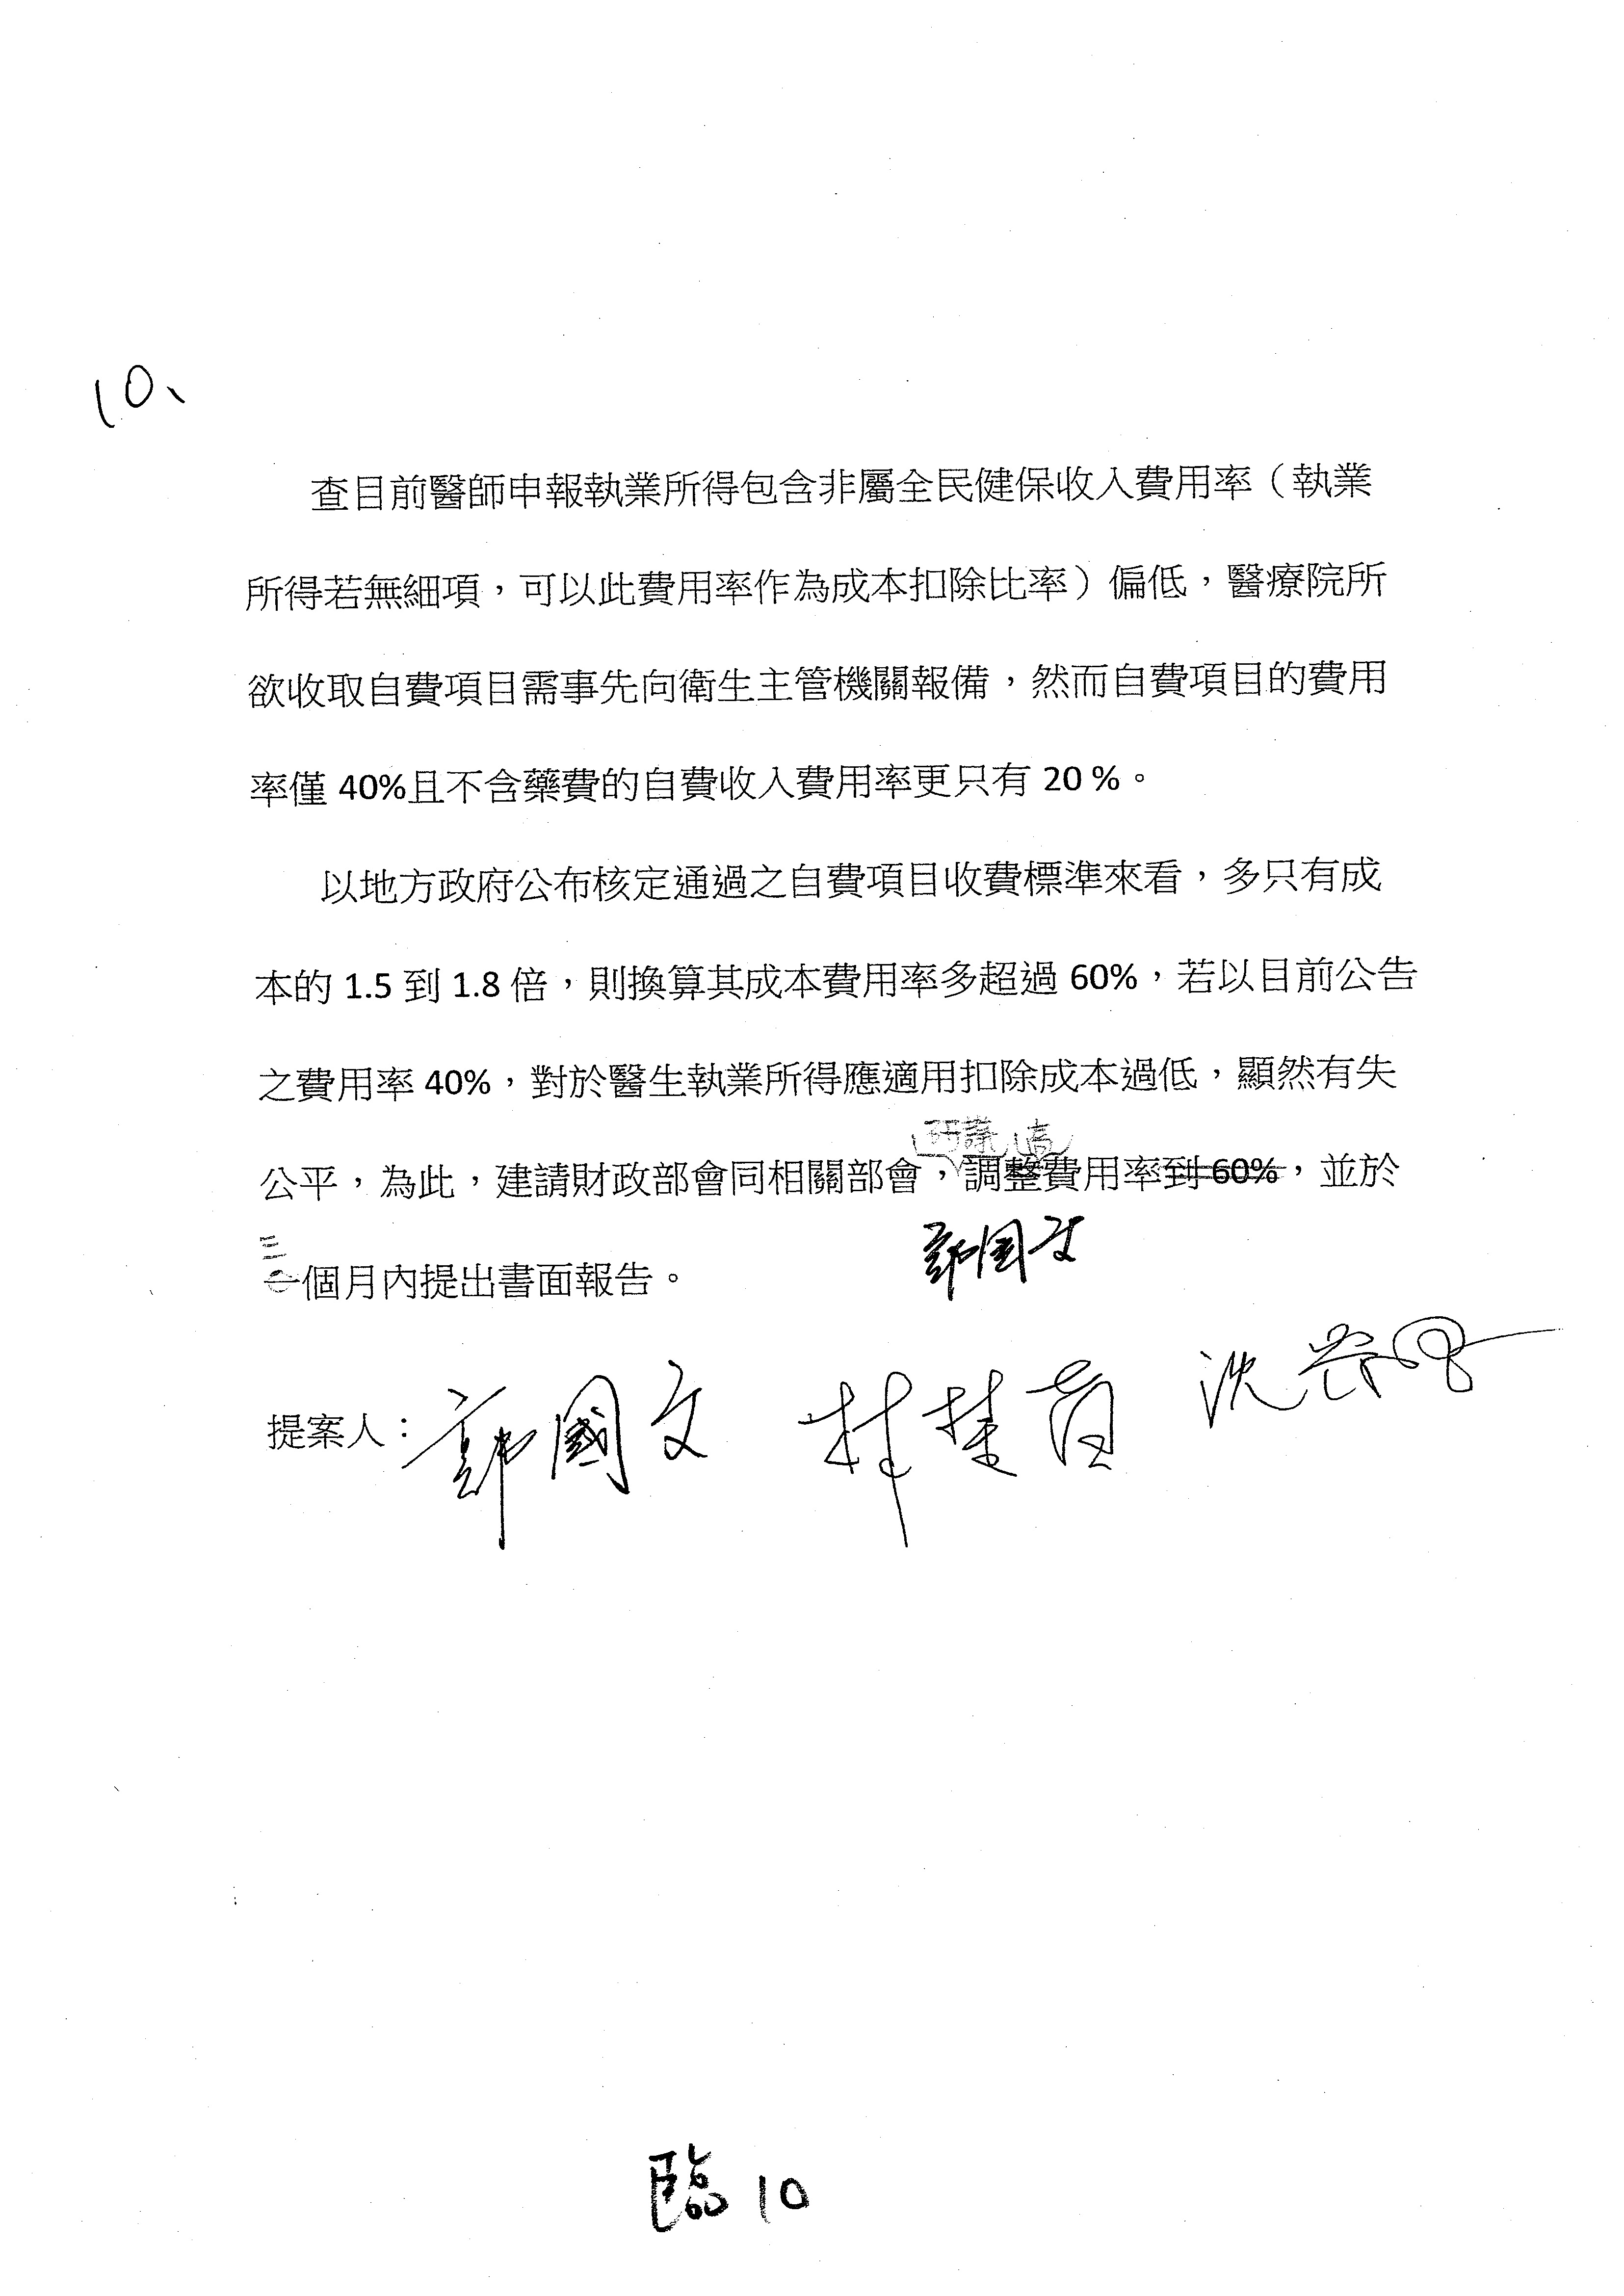 10、
查目前醫師申報執業所得包含非屬全民健保收入費用率（執業
所得若無細項，可以此費用率作為成本扣除比率）偏低，醫療院所
欲收取自費項目需事先向衛生主管機關報備，然而自費項目的費用
率僅 40%且不含藥費的自費收入費用率更只有 20 %。
以地方政府公布核定通過之自費項目收費標準來看，多只有成
本的 1.5 到 1.8 倍，則換算其成本費用率多超過 60%，若以目前公告
之費用率 40%，對於醫生執業所得應適用扣除成本過低，顯然有失
研議
公平，為此，建請財政部會同相關部會，調整費用率到 60%，並於
三
個月內提出書面報告。
郭國文
提案人：郭國文
臨 10